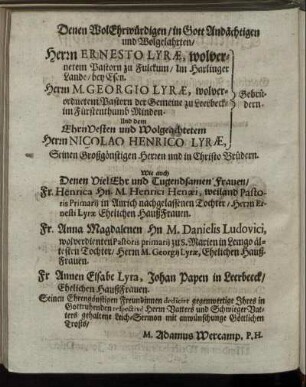 Denen WolEhrwürdigen/in Gott Andächtigen
und Wolgelahrten/
Herrn ERNESTO LYRÆ, wolver-
netem Pastorn zu Fulckum/ Im Harlinger
Lande/ bey Esen.
Herrn M. GEORGIO LYRÆ, wolver-
ordnetem Pastorn der Gemeine zu Leerbeck-
im Fürstenthumb Minden-
Und dem
EhrnVesten und Wolgeachtetem
Herrn NICOLAO HENRICO LYRÆ,
Gebrü-
dern.
Seinen Großgönstigen Herren und in Christo Brüdern.
Wie auch
Denen Viel Ehr und Tugendsamen Frauen/
Fr. Henrica Hn M. Henrici Henæi, weiland Pasto-
ris Primarij in Aurich nachgelassenen Tochter/ Herrn Er-
nesti Lyræ Ehelichen HaußFrauen.
Fr. Anna Magdalenen Hn M. Danielis Ludovici,
wolverdienten Pastoris primarij zu S. Marien in Lemgo äl-
testen Tochter/ Herrn M. Georgij Lyræ, Ehelichen Hauß-
Frauen.
Fr Annen Elsabe Lyra, Johan Papen in Leerbeeck/
Ehelichen HaußFrauen.
Seinen Ehrengönstigen Freundinnen dediciret gegenwertige Ihres in
Gott ruhenden respectivè Herrn Vatters und Schwieger-Vat-
ters gehaltene Leich-Sermon mit anwünschunge Göttlichen
Trosts/
M. Adamus Wercamp, P.H.